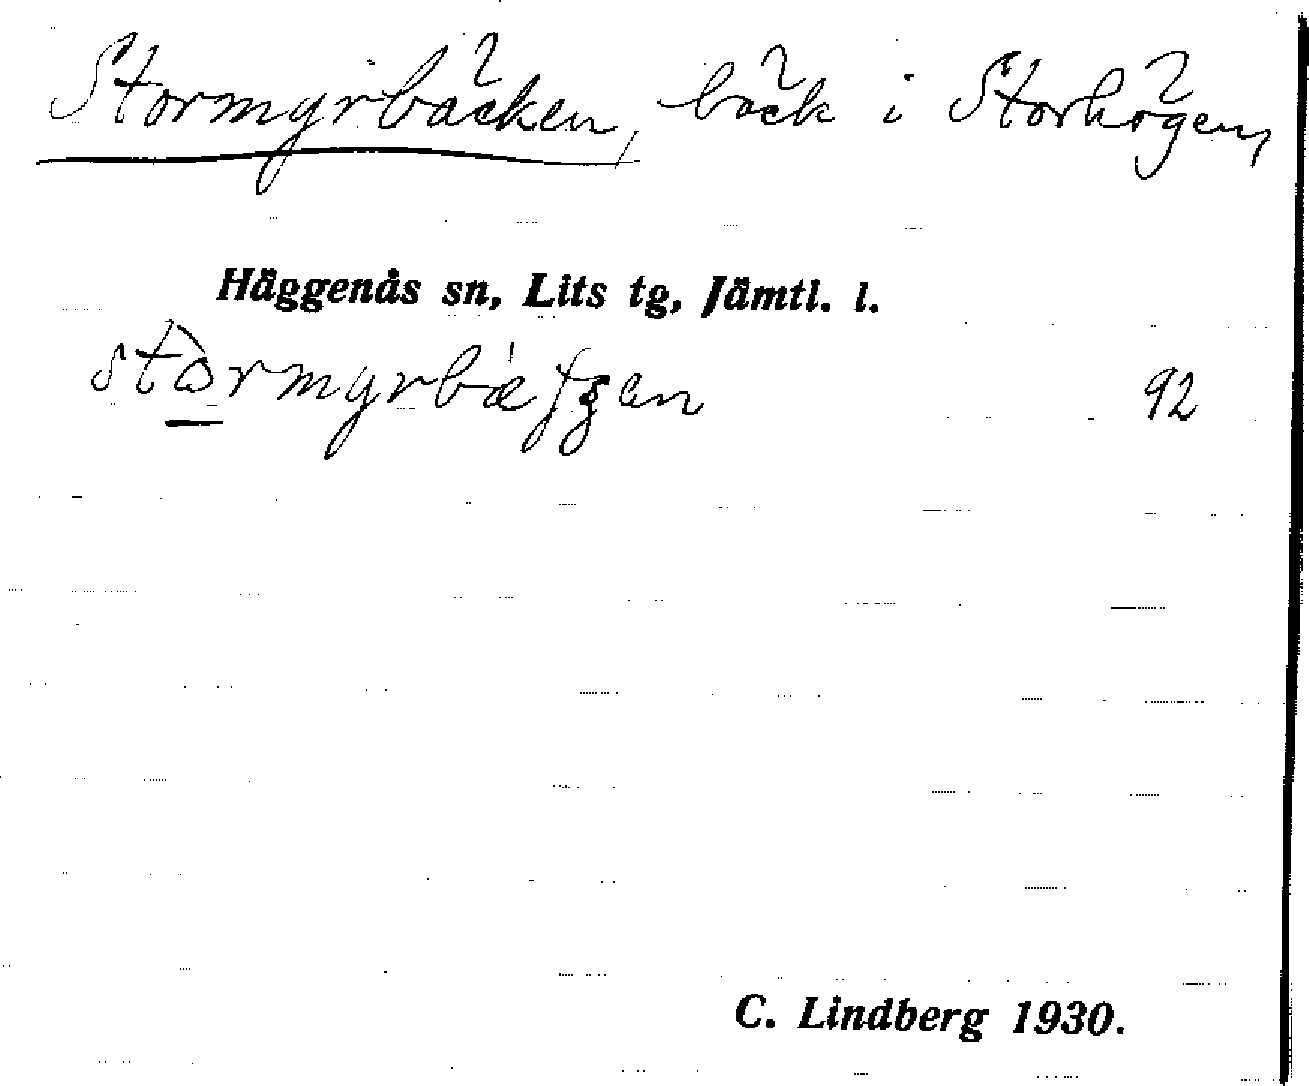 Stormyrbäcken, bäck i Storhögen,
Häggenås sn, Lits tg, Jämtl. l.
92
C. Lindberg 1930.